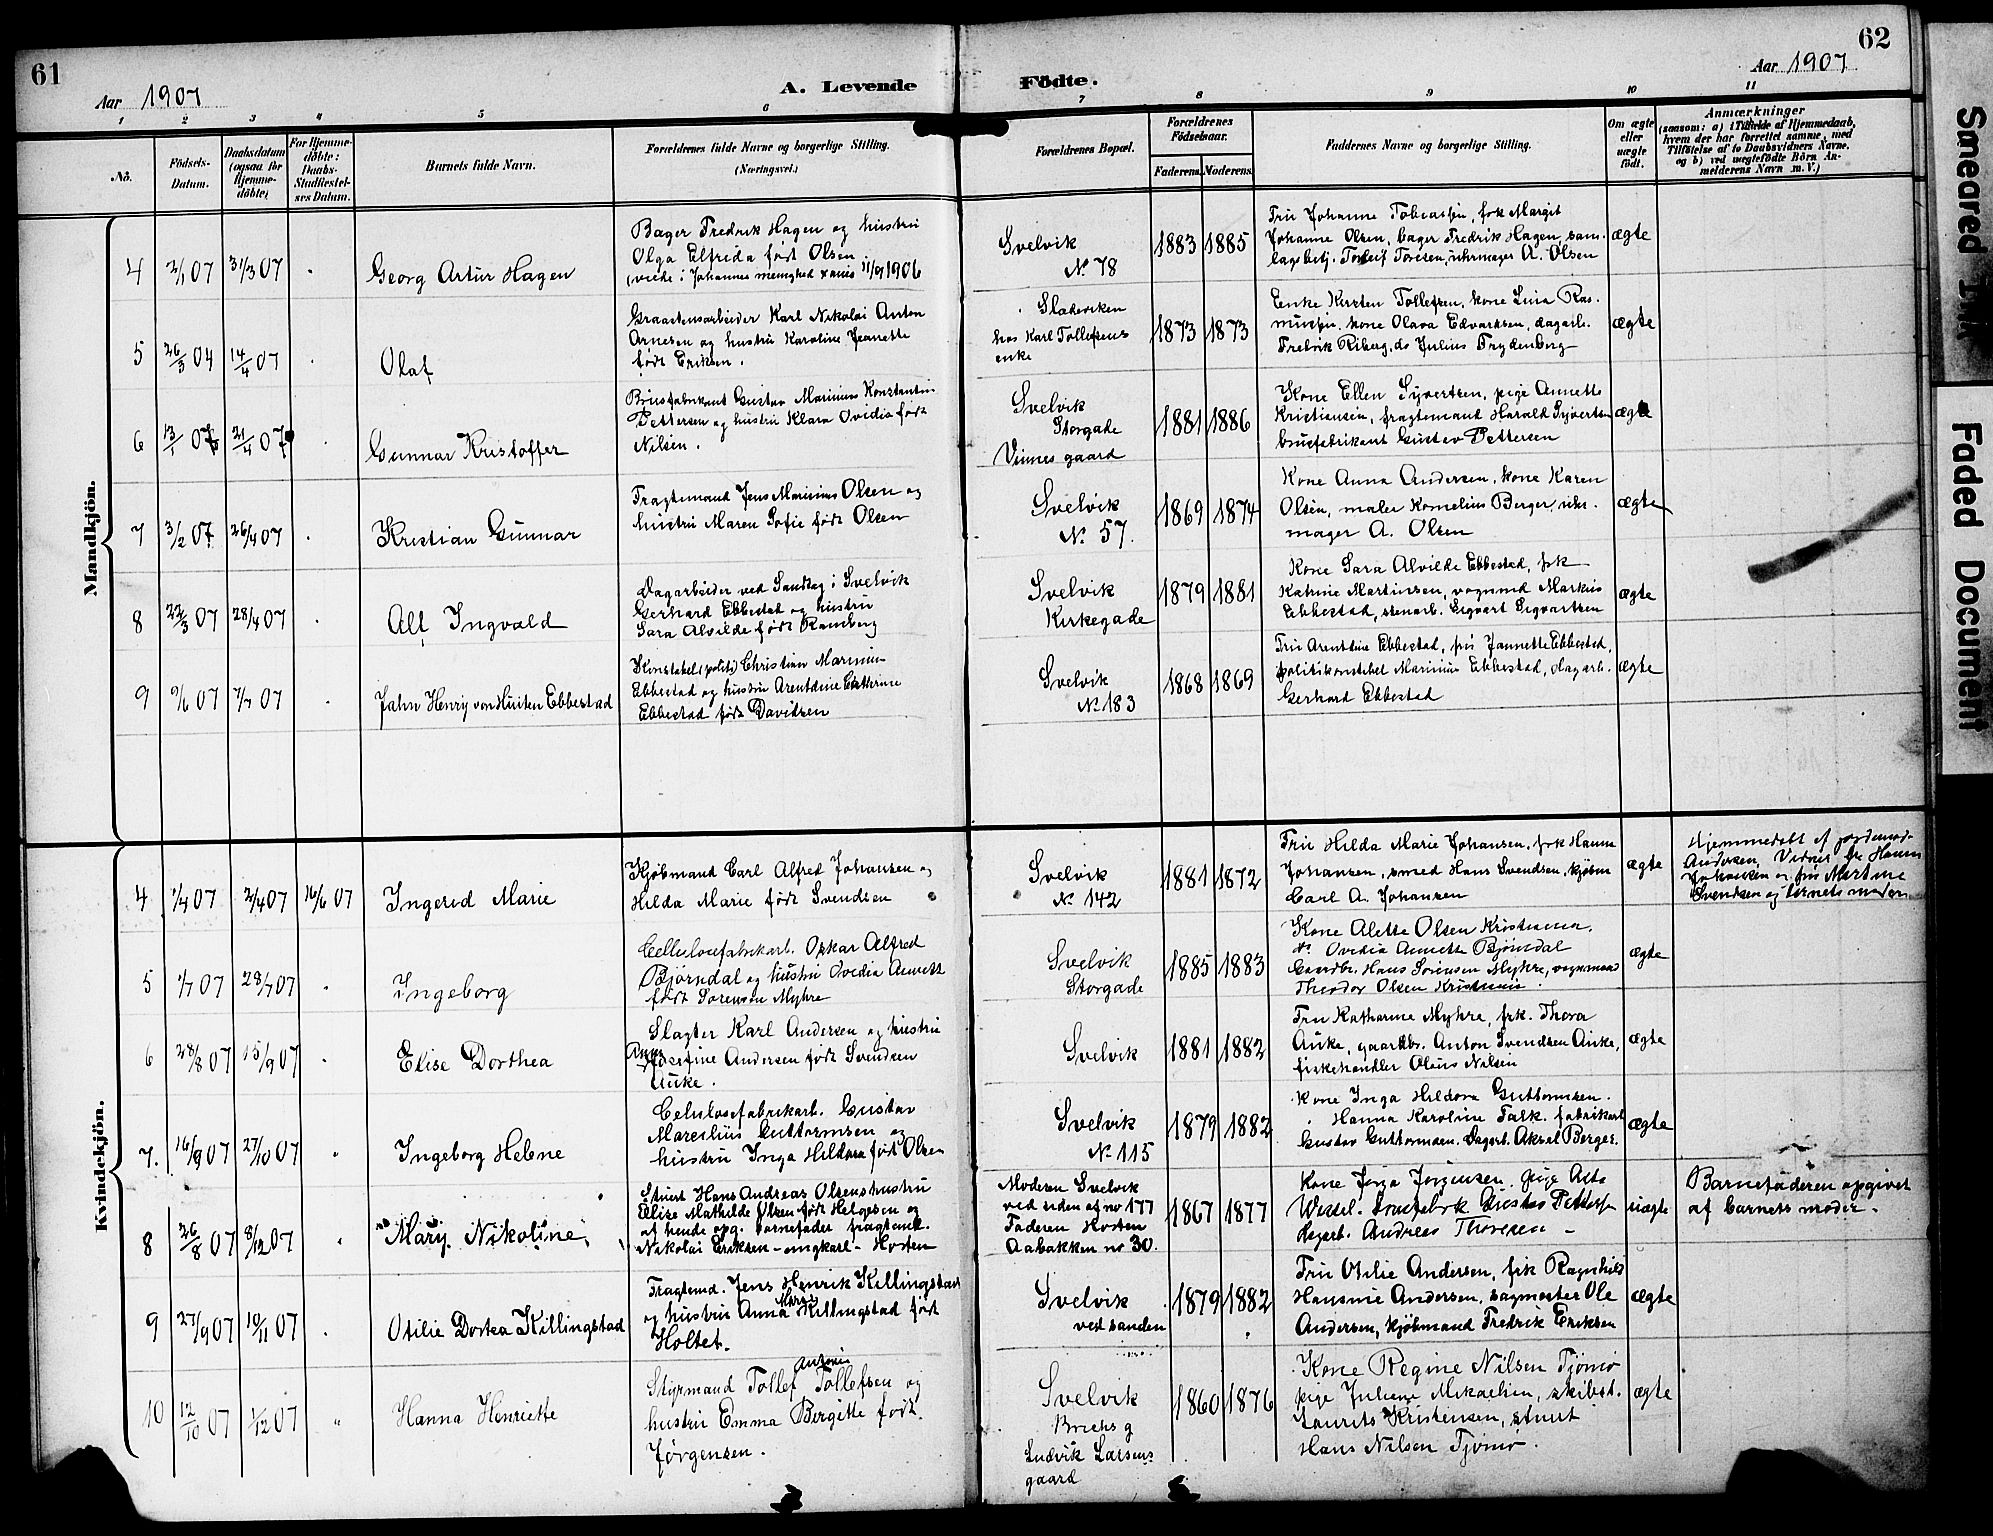 61
Aar 1907
A. Levende
Födte.
62
Aar 1907
1 2 3 4 5 6 7 8 9 10 11
No.
Födsels-Datum.
Daabsdatum (ogsaa for Hjemme-döbte)
For Hjemme-döbte: Daabs-Stadfæstel-ses Datum.
Barnets fulde Navn.
Forældrenes fulde Navne og borgerlige Stilling.
(Næringsvei.)
Forældrenes Bopæl.
Forældrenes Födselsaar.
Faderens. Moderens.
Faddernes Navne og borgerlige Stilling.
Om ægte eller uægte födt.
Anmærkninger
(saasom: a) i Tilfælde af Hjemmedaab,
hvem der har forrettet samme, med
Tilföielse af to Daabsvidners Navne,
og b) ved uægtefödte Börn An-
melderens Navn m. V.)
Mandkjön.
4 2/1 07 31/3 07
Georg Artur Hagen
Bager Fredrik Hagen og hustru
Olga Elfrida født Olsen
(viede i Johannes menighed 11/9 1906
Svelvik
No 78
1883 1885
Fru Johanne Tobiassen, frk Margit
Johanne Olsen, bager Fredrik Hagen, sam-
lagsbetj. Torleif Toresen, uhrmager A. Olsen
ægte
5 26/3 04 14/4 07
Olaf
Graastensarbeider Karl Nikolai Anton
Arnesen og hustru Karoline Jeanette
født Eriksen.
hos Karl Tollefsens
enke
1873 1873
Enke Kirsten Tollefsen, kone Lina Ras-
mussen, kone Olava Edvardsen, dagarb.
Fredrik Riberg, do Julius Frydenberg
ægte
6 13/1 07 21/4 07
Gunnar Kristoffer
Brusfabrikant Gustav Marinius Konstantin
Pettersen og hustru Klara Ovidia født
Nilsen.
Svelvik
Storgade
Vinnes gaard
1881 1886
Kone Ellen Syvertsen, pige Annette
Kristiansen, fragtemand Harald Syvertsen
brusfabrikant Gustav Pettersen
ægte
7 3/2 07 26/4 07
Kristian Gunnar
Fragtemand Jens Marinius Olsen og
hustru Maren Sofie født Olsen
Svelvik
No 57.
1869 1874
Kone Anna Andersen, kone Karen
Olsen, maler Kornelius Berger, uhr-
mager A. Olsen
ægte
8 22/3 07 28/4 07
Alf Ingvald
Dagarbeider ved Sandtag i Svelvik
Gerhard Ebbestad og hustru
Sara Alvilde født Ramberg
Svelvik
Kirkegade
1879 1881
Kone Sara Alvilde Ebbestad, frk
Katrine Martinsen, vognmd Markus
Ebbestad, stenarb. Sigvart Sigvartsen
ægte
9 9/6 07 7/7 07
Jahn Henry von Huiten Ebbestad
Konstabel (politi) Christian Marinius
Ebbestad og hustru Arentdine Cathrine
Ebbestad født Davidsen
Svelvik
No 183
1868 1869
Fru Arentdine Ebbestad, frk Jannette Ebbestad,
politikonstabel Marinius Ebbestad, dagarb.
Gerhard Ebbestad
ægte
Kvindekjön.
4 1/4 07 2/4 07 16/6 07
Ingerid Marie
Kjøbmand Carl Alfred Johansen og
Hilda Marie født Svendsen
Svelvik
No 142
1881 1872
Fru Hilda Marie Johansen, frk Hanna
Johansen, smed Hans Svendsen, kjøbm
Carl A. Johansen
ægte
Hjemmedøbt af jordemod.
Andersen. Vidner frk Hanna
Johansen og fru Martine
Svendsen og barnets moder
5 1/7 07 28/7 07
Ingeborg
Cellulosefabrikarb. Oskar Alfred
Bjørndal og hustru Ovidia Annette
født Sørensen Myhre
Svelvik
Storgade
1885 1883
Kone Alette Olsen Kristiania,
do Ovidia Annette Bjørndal
Gaardbr. Hans Sørensen Myhre, vognmand
Theodor Olsen Kristiania.
ægte
6 28/8 07 15/9 07
Elise Dorthea
Slagter Karl Andersen og hustru
Anna Josefine Andersen født Svendsen
Auke.
Svelvik
1881 1882
Fru Katharine Myhre, frk. Thora
Auke, gaardbr. Anton Svendsen Auke,
fiskehandler Olaus Nilsen
ægte
7. 16/9 07 27/10 07
Ingeborg Helene
Celulosefabrikarb. Gustav
Marcelius Guttormsen og
hustru Inga Hildora født Olsen
Svelvik
No 115
1879 1882
Kone Inga Hildora Guttormsen.
Hanna Karoline Falk. fabrikarb
Gustav Guttormsen. Dagarb. Aksel Berger.
ægte
8 26/8 07 8/12 07
Mary Nikoline
Stuert Hans Andreas Olsens hustru
Elise Mathilde Olsen født Helgesen og
af hende opg. barnefader fragtemd.
Nikolai Eriksen - ungkarl - Horten
Moderen Svelvik
ved siden af no 177
Faderen Horten
Aabakken no 30.
1867 1877
Kone Jørga Jørgensen. pige Asta
Wessel. Brusfabrk Gustav Pettersen
dagarb. Andreas Thoresen -
uægte
Barnefaderen opgivet
af barnets moder.
9 27/9 07 10/11 07
Otilie Dortea Killingstad
Fragtemd. Jens Henrik Killingstad
og hustru Anna Marie Killingstad født
Holtet.
Svelvik
ved sanden
1879 1882
Fru Otilie Andersen, frk Ragnhild
Hansine Andersen, sagmester Ole
Andersen, kjøbmand Fredrik Eriksen
ægte
10 12/10 07 1/12 07
Hanna Henriette
Styrmand Tollef Antoni Tollefsen og
hustru Emma Bergitte født.
Jørgensen.
Svelvik
Ludvik Larsens
gaard
1860 1876
Kone Regine Nilsen Tjømø
pige Juliane Mikaelsen, skibst.
Laurits Kristensen, stuert
Hans Nilsen Tjømø.
ægte
Smeared Ink
Faded Document